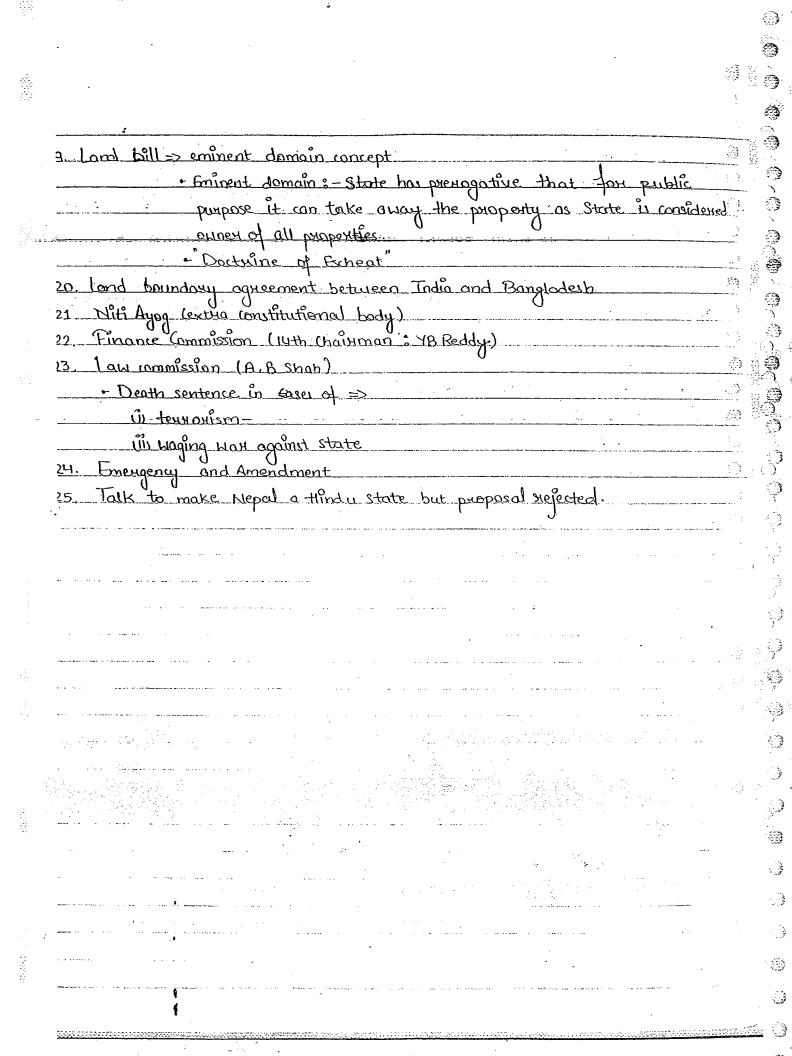 9. Land bill => eminent domain concept
• Eminent domain :- State has prerogative that for public
purpose it can take away the property as State is considered
owner of all properties.
• "Doctrine of Escheat"
20. Land boundary agreement between India and Bangladesh
21. Niti Ayog (extra constitutional body)
22. Finance Commission (14th Chairman : YB Reddy.)
23. Law commission (A.B Shah)
• Death sentence in cases of =>
(i) terrorism
(ii) waging war against state
24. Emergency and Amendment
25. Talk to make Nepal a Hindu state but proposal rejected.